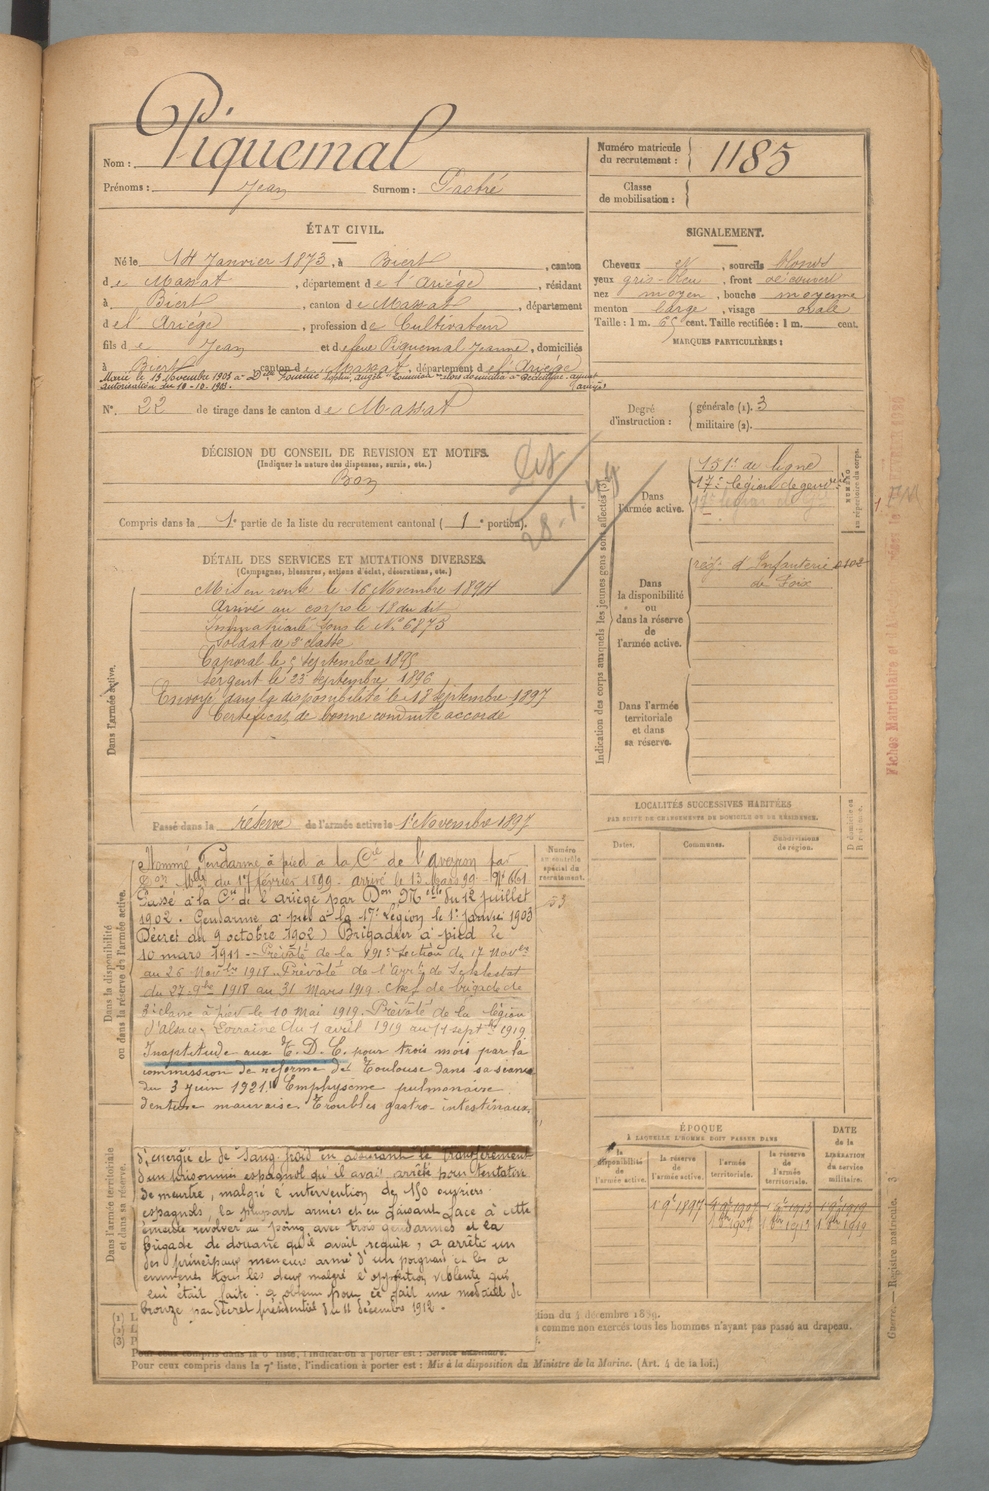 Nom : Piquemal
Prénoms : Jean Surnom : Pastré
Numéro matricule du recrutement : 1185
Classe de mobilisation :
ÉTAT CIVIL.
Né le 14 Janvier 1873, à Biert, canton
de Massat, département de l'Ariège, résidant
à Biert, canton de Massat, département
de l'Ariège, profession de Cultivateur
fils de Jean et de feue Piquemal Jeanne, domiciliés
à Biert, canton de Massat, département de l'Ariège
Marié le 13 Novembre 1903 à
autorisation du 10-10-1903.
N° 22 de tirage dans le canton de Massat
SIGNALEMENT.
Cheveux et, sourcils blonds
yeux gris-bleu, front découvert
nez moyen, bouche moyenne
menton large, visage ovale
Taille : 1 m. 65 cent. Taille rectifiée : 1 m. cent.
MARQUES PARTICULIÈRES :
Degré d'instruction : générale (1). 3
militaire (2).
DÉCISION DU CONSEIL DE REVISION ET MOTIFS.
(Indiquer la nature des dispenses, sursis, etc.)
Bon
Compris dans la 1e partie de la liste du recrutement cantonal ( 1e portion).
28-1-49
DÉTAIL DES SERVICES ET MUTATIONS DIVERSES.
(Campagnes, blessures, actions d'éclat, décorations, etc.)
Dans l'armée active.
Mis en route le 16 Novembre 1894
Arrivé au corps le 18 du dit
Immatriculé sous le N° 6875
Soldat de 2e classe
Caporal le Septembre 1895
Sergent le 23 Septembre 1896
Envoyé dans la disponibilité le 18 Septembre 1897
Certificat de bonne conduite accordé
Passé dans la réserve de l'armée active le 1er Novembre 1897
Indication des corps auxquels les jeunes gens sont affectés (3)
Dans l'armée active.
151e de ligne
17e légion de gend
Dans la disponibilité ou dans la réserve de l'armée active.
régt d'Infanterie
de Foix
Dans l'armée territoriale et dans sa réserve.
NUMÉRO au répertoire du corps.
LOCALITÉS SUCCESSIVES HABITÉES
PAR SUITE DE CHANGEMENTS DE DOMICILE OU DE RÉSIDENCE.
Dates. Communes. Subdivisions de région.
Numéro au contrôle spécial du recrutement.
53
Dans la disponibilité ou dans la réserve de l'armée active.
Nommé Gendarme à pied à la Cie de l'Aveyron par
Don Mlle du 17 février 1899 - arrivé le 13 Mars 99 - N° 661
Passé à la Cie de l'Ariège par Don Mlle du 12 juillet
1902. Gendarme à pied à la 17e Légion le 1er janvier 1903
(Décret du 9 octobre 1902) Brigadier à pied le
10 mars 1911 - Prévôté de la section du 17 Novbre
au 26 Novbre 1918 - Prévôté de l'Arrt de Schlestat
du 27 9bre 1918 au 31 Mars 1919. chef de brigade de
classe à pied le 10 mai 1919. Prévôté de la légion
d'Alsace-Lorraine du 1 avril 1919 au 11 septbre 1919
Inaptitude aux T. D. E. pour trois mois par la
commission de réforme de Toulouse dans sa séance
du 3 juin 1921. "Emphysème pulmonaire
denture mauvaise. Troubles gastro-intestinaux.
Dans l'armée territoriale et dans sa réserve.
d'énergie et de sang froid en assurant le transfèrement
d'un prisonnier espagnol qu'il avait arrêté pour tentative
de meurtre, malgré l'intervention de 150 ouvriers
espagnols, la plupart armés et en faisant face à cette
émeute revolver au poing avec trois gendarmes et la
brigade de douane qu'il avait requise, a arrêté un
des principaux meneurs armé d'un poignard et les a
emmenés tous les deux malgré l'opposition violente qui
lui était faite : a obtenu pour ce fait une médaille de
bronze par décret présidentiel du 11 décembre 1912.
ÉPOQUE
À LAQUELLE L'HOMME DOIT PASSER DANS
la disponibilité de l'armée active. la réserve de l'armée active. l'armée territoriale. la réserve de l'armée territoriale.
DATE de la LIBÉRATION du service militaire.
tion du 4 décembre 1889.
s comme non exercés tous les hommes n'ayant pas passé au drapeau.
Pour ceux compris dans la 7e liste, l'indication à porter est : Mis à la disposition du Ministre de la Marine. (Art. 4 de la loi.)
Guerre. — Registre matricule. 3